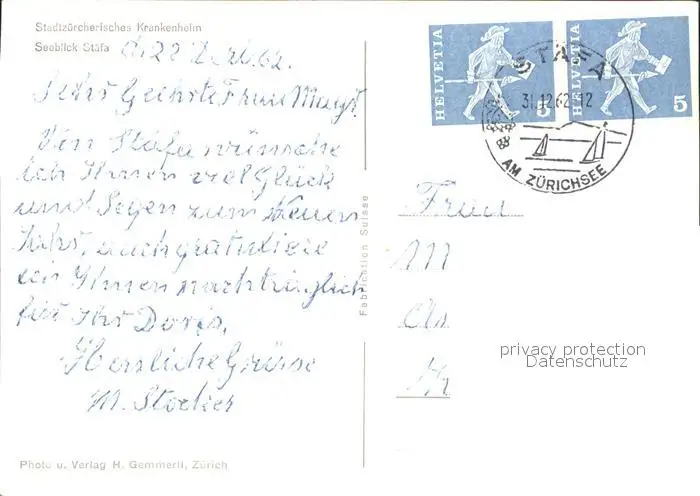 Stadtzürcherisches Krankenheim
Seeblick Stäfa
d. 28. 62.
Sehr Geehrte Frau
Von Stäfa wünsche
ich Ihnen viel Glück
und Segen zum Neuen
Jahr, auch gratuliere
ich Ihnen nachträglich
für Ihr Doris.
Herzliche Grüsse
M. Stocker
Photo u. Verlag H. Gemmerli, Zürich
Fabrication Suisse
HELVETIA 5
HELVETIA 5
STÄFA
31.12.62
AM ZÜRICHSEE
Frau
privacy protection
Datenschutz